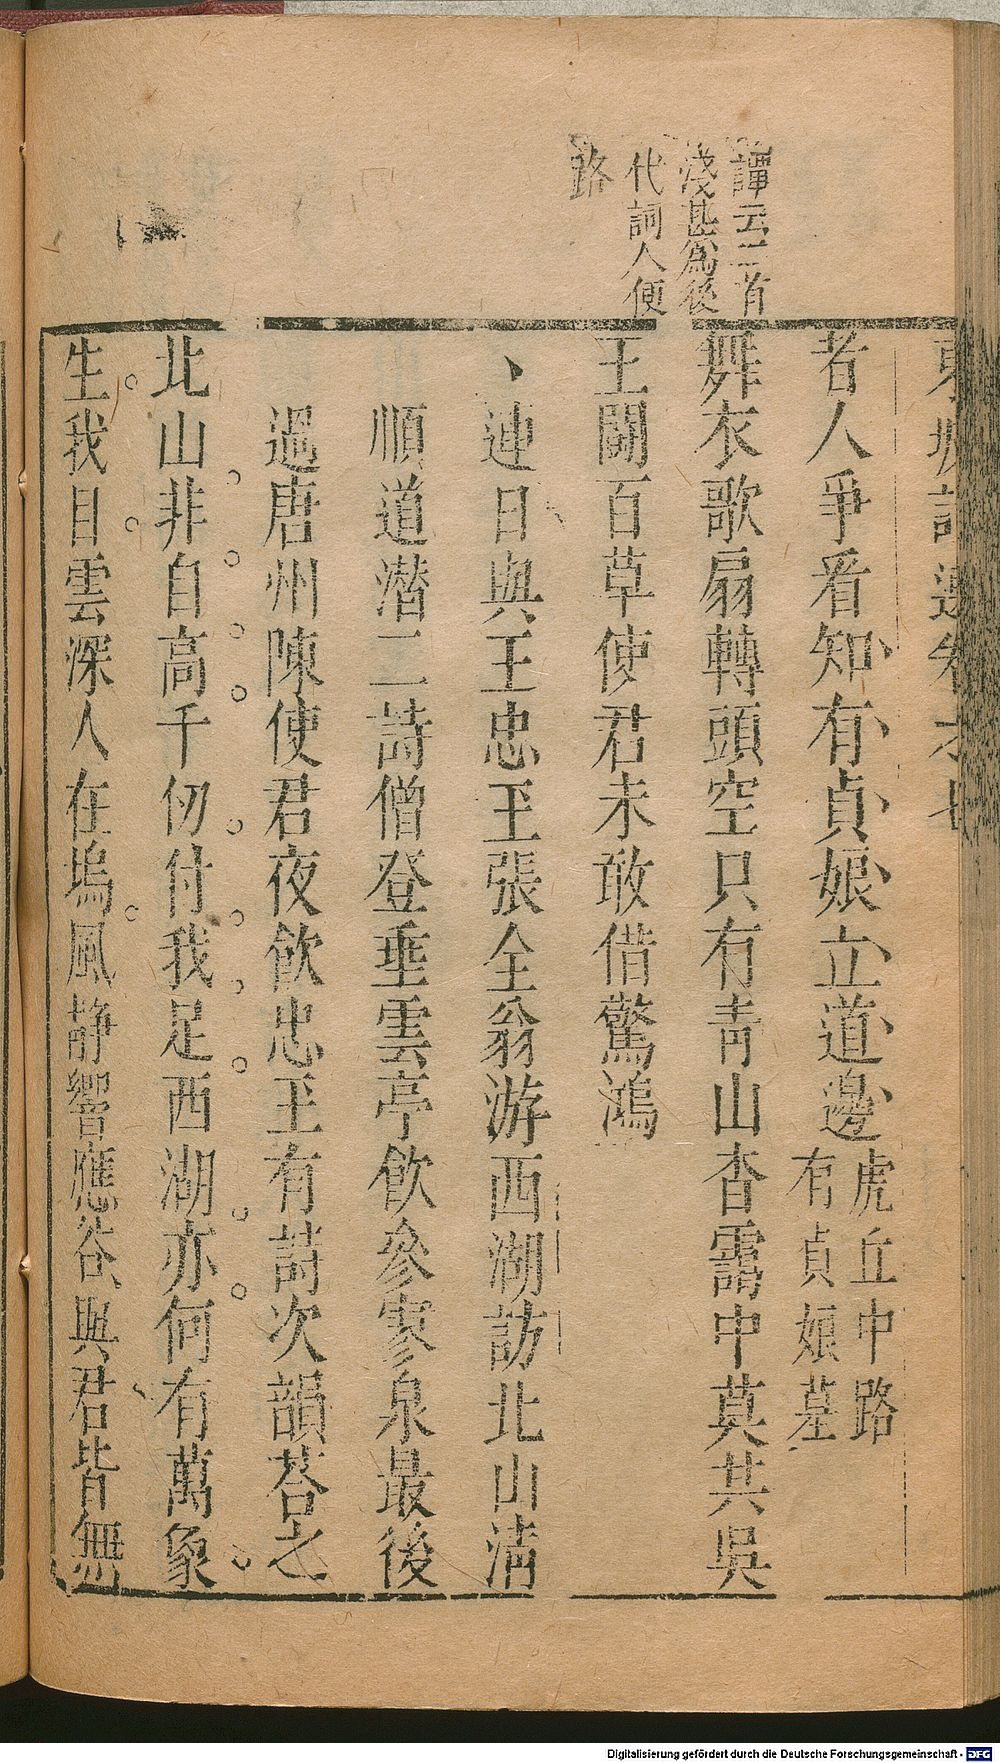 譚云二首
淺甚為後
代詞人便
路
東坡詩選卷之七
者人爭看知有貞娘立道邊虎丘中路
有貞娘墓
舞衣歌扇轉頭空只有青山杳靄中莫共吳
王鬪百草使君未敢借驚鴻
、連日與王忠玉張全翁游西湖訪北山淸
順道潜二詩僧登垂雲亭飲參寥泉最後
過唐州陳使君夜飲忠玉有詩次韻荅之
北山非自高千仞付我足西湖亦何有萬象
生我目雲深人在塢風静響應谷與君皆無
Digitalisierung gefördert durch die Deutsche Forschungsgemeinschaft - DFG